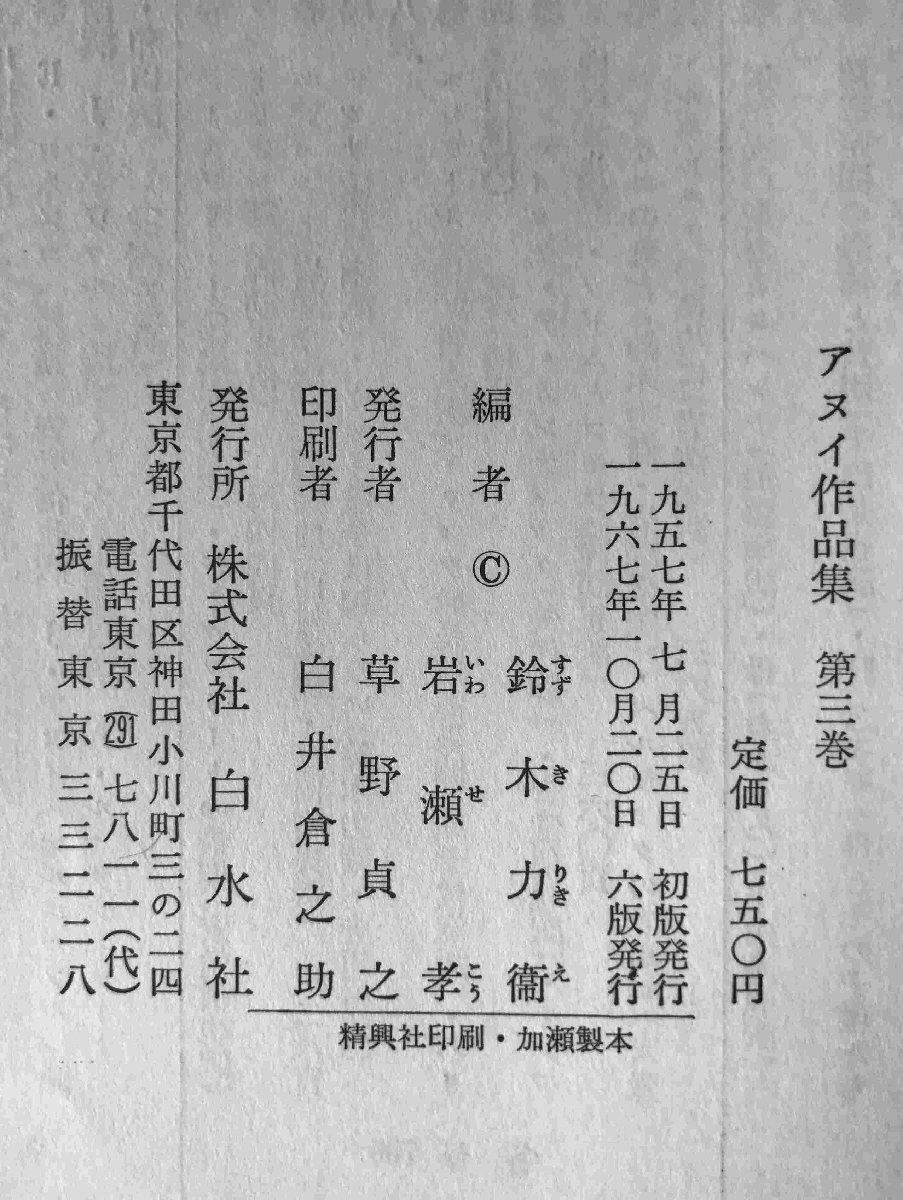 アヌイ作品集 第三巻
定価 七五〇円
一九五七年 七 月二五日 初版発行
一九六七年一〇月二〇日 六版発行
編者 ©
鈴木力衞
すずきりきえ
岩瀬孝
いわせこう
発行者 草野貞之
印刷者 白井倉之助
発行所 株式会社 白水社
東京都千代田区神田小川町三の二四
電話東京(291)七八一一(代)
振替東京三三二二八
精興社印刷・加瀬製本